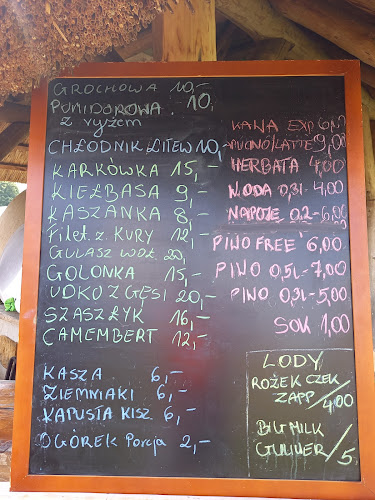 GROCHOWA 10,-
POMIDOROWA 10,-
z ryżem
CHŁODNIK LITEW 10,-
KARKÓWKA 15,-
KIEŁBASA 9,-
KASZANKA 8,-
Filet z KURY 12,-
GULASZ WOŁ. 20,-
GOLONKA 15,-
UDKO Z GĘSI 20,-
SZASZŁYK 16,-
CAMEMBERT 12,-
KASZA 6,-
ZIEMNIAKI 6,-
KAPUSTA KISZ. 6,-
OGÓREK Porcja 2,-
KAWA EXP 6,00
/LATTE 9,00
HERBATA 4,00
WODA 0,3l - 4,00
NAPOJE 0,2 - 6,00
PIWO FREE 6,00
PIWO 0,5l - 7,00
PIWO 0,3l - 5,00
SOK 1,00
LODY
ROŻEK CZEK
ZAPP / 4,00
BIG MILK
/ 5,